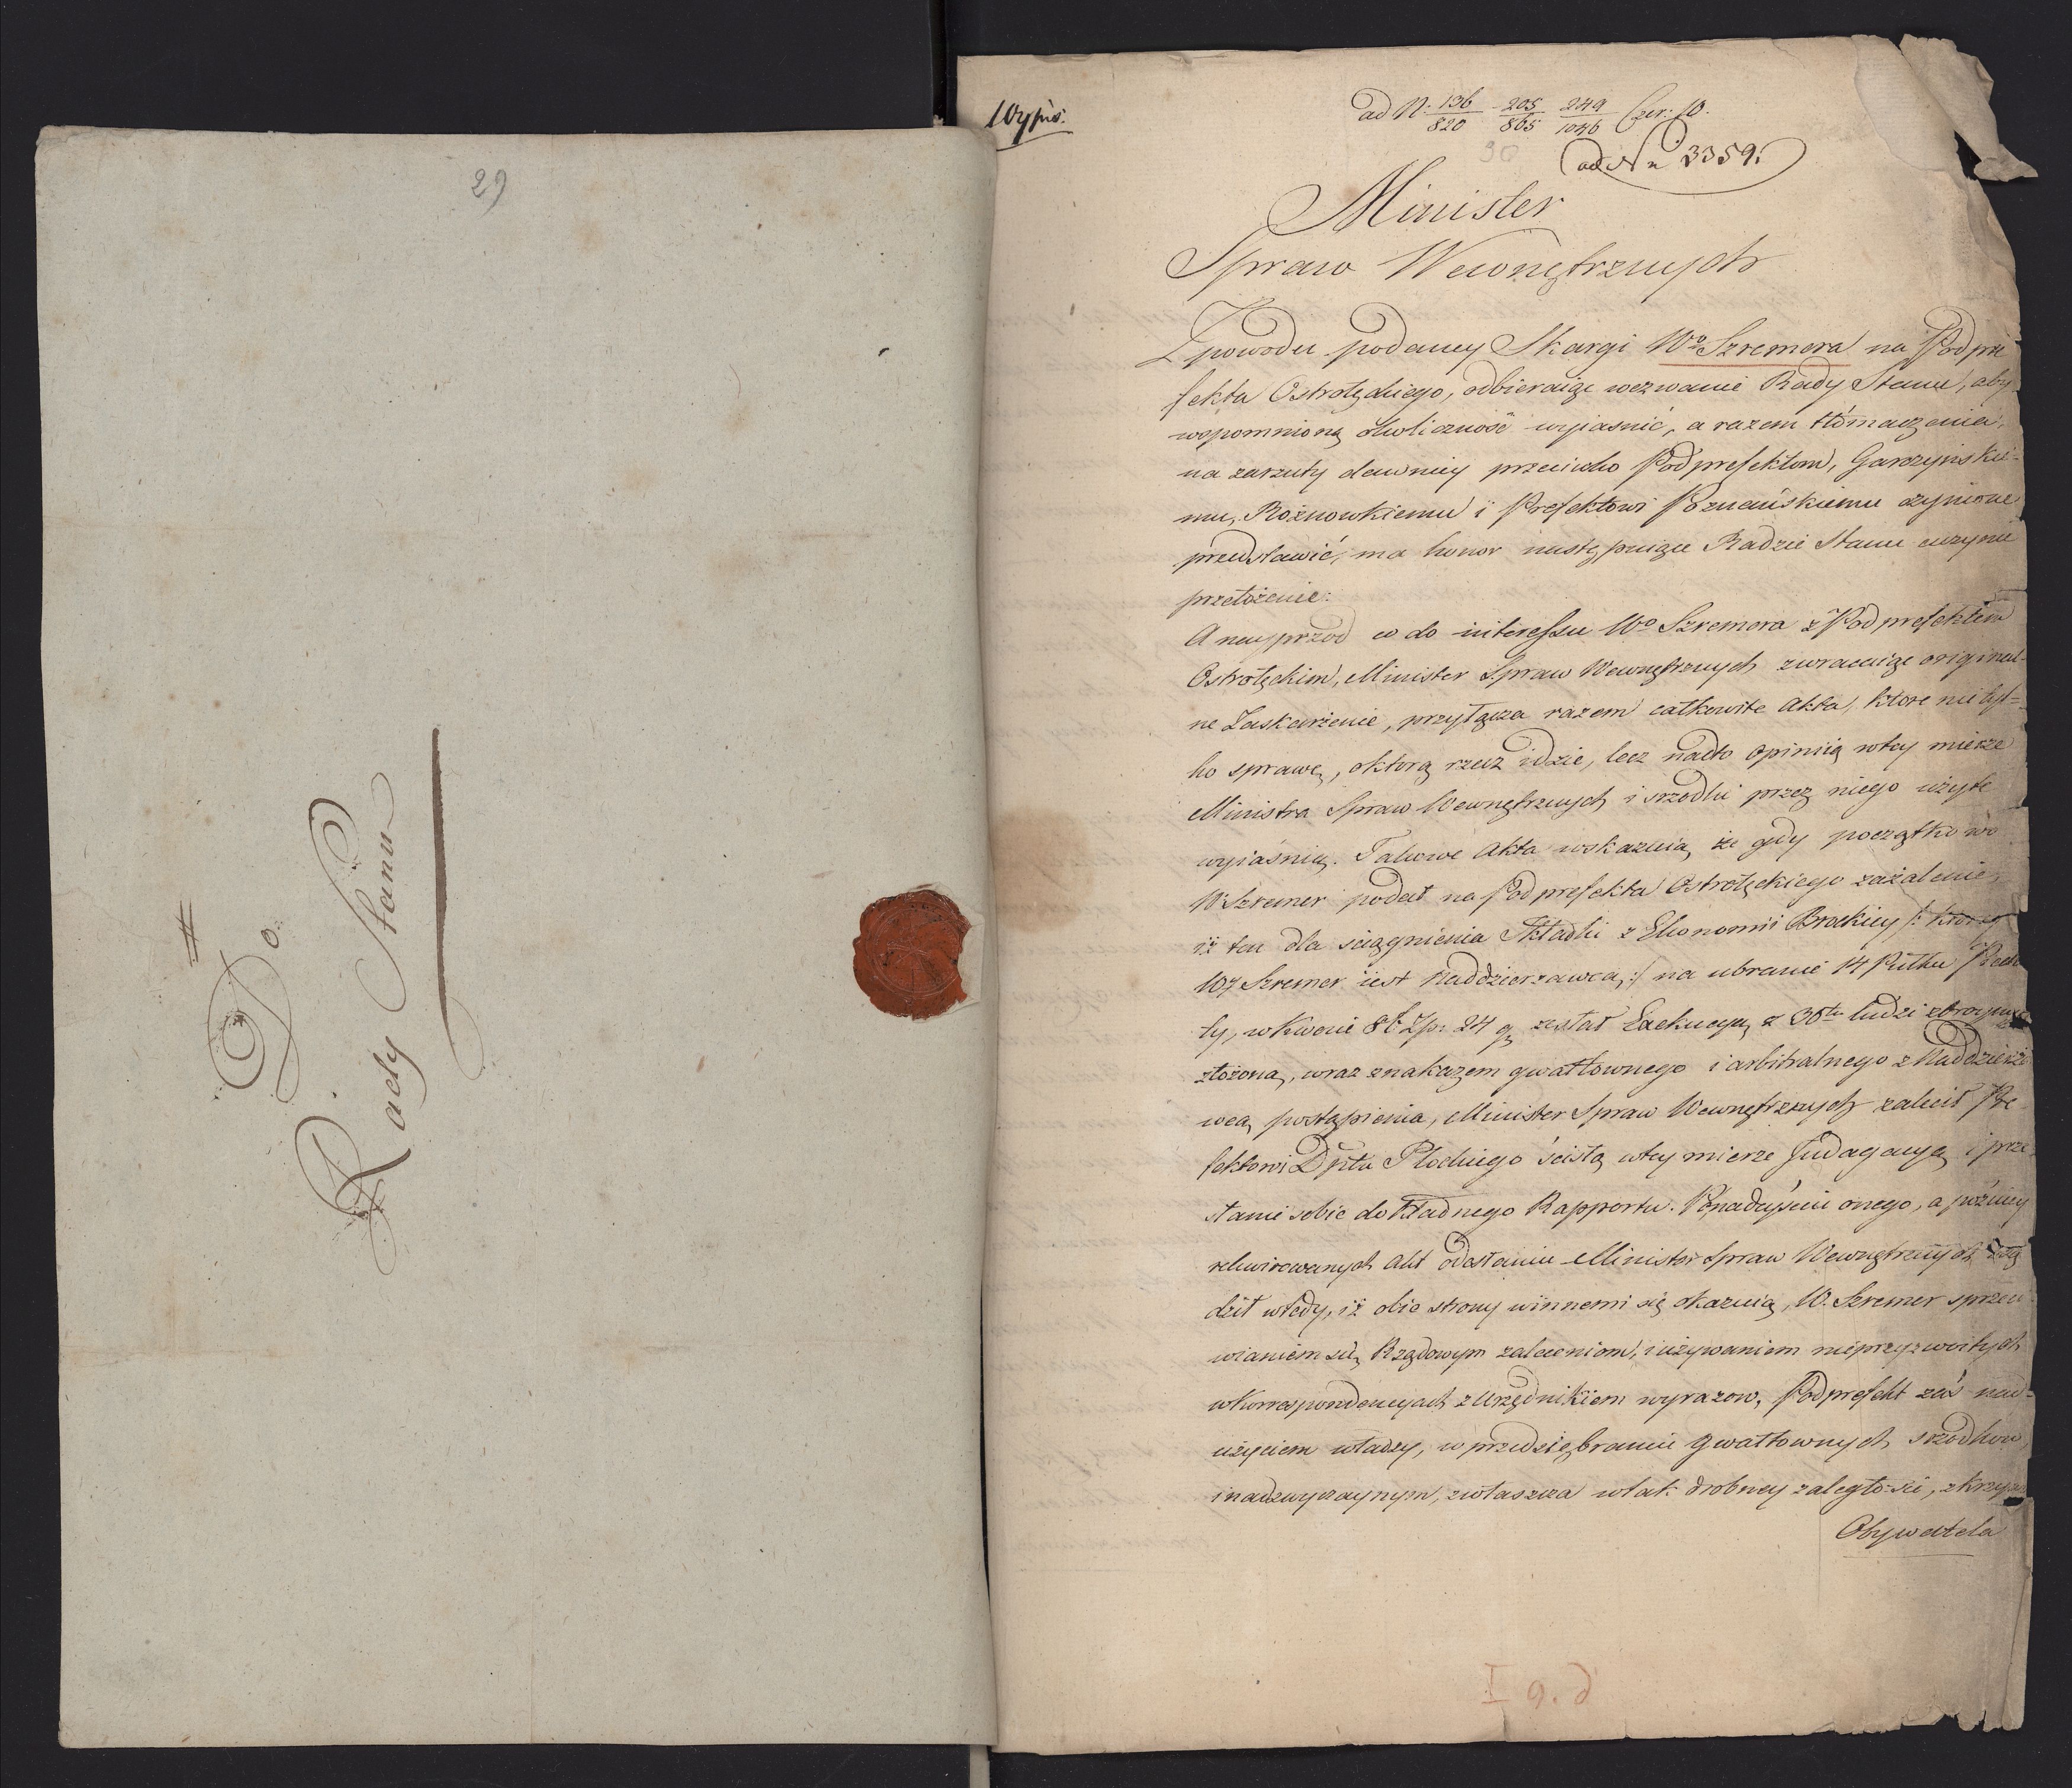 29
#
Do
Rady Stanu
Wypis:
ad N. 136/820 205/865 249/1046 Czer: 10.
30
ad Nu 3359.
Minister
Spraw Wewnętrznych
Z powodu podaney Skargi Wo Szremera na Podpre
fekta Ostrołęckiego, odbieraiąc wezwanie Rady Stanu, aby
wspomnioną okoliczność wyiasnić, a razem tłómaczenia,
na zarzuty dawniey przeciwko Podprefektom, Garczyńskie-
mu, Rożnowkiemu i Prefektowi Poznańskiemu czynione
przedstawić, ma honor następuiące Radzie Stanu uczynić
przełożenie:
A nayprzod co do interessu Wo Szremera z Podprefektem
Ostrołęckim, Minister Spraw Wewnętrznych zwracaiąc original-
ne Zaskarżenie, przyłącza razem całkowite Akta, ktore nietyl-
ko sprawę, oktorą rzecz idzie, lecz nadto opiniią wtey mierze
Ministra Spraw Wewnętrznych i srzodki przez niego użyte
wyiaśnią. Takowe Akta wskazuią, że gdy początkowo
W Szremer podał na Podprefekta Ostrołęckiego zażalenie,
iż ten dla sciągnienia Składki z Ekonomii Brockiey /: ktorey
Wy Szremer iest Naddzierzawcą :/ na ubranie 14 Pułku Piecho
ty, wkwocie 86 Zp: 24 g zesłał Exekucyą z 30tu ludzi zbroynych
złożoną, wraz znakazem gwałtownego i arbitralnego z Naddzierża
wcą postąpienia, Minister Spraw Wewnętrznych zalecił Pre
fektowi Dptu Płockiego ścisłą wtey mierze Indagacyą i prze
słanie sobie dokładnego Rapportu. Ponadeyściu onego, a poźniey
rekwirowanych Akt odesłaniu Minister Spraw Wewnętrznych są
dził wtedy, iż obie strony winnemi się okazuią, W. Szremer sprzeci
wianiem się Rządowym zaleceniom, i używaniem nieprzyzwoitych
wKorrespondencyach z Urzędnikiem wyrazow, Podprefekt zaś nad-
użyciem władzy, w przedsiębraniu gwałtownych srzodkow
i nadzwyczaynym, zwłaszcza wtak drobney zaległości, skrzyw
Obywatela
I 9. d